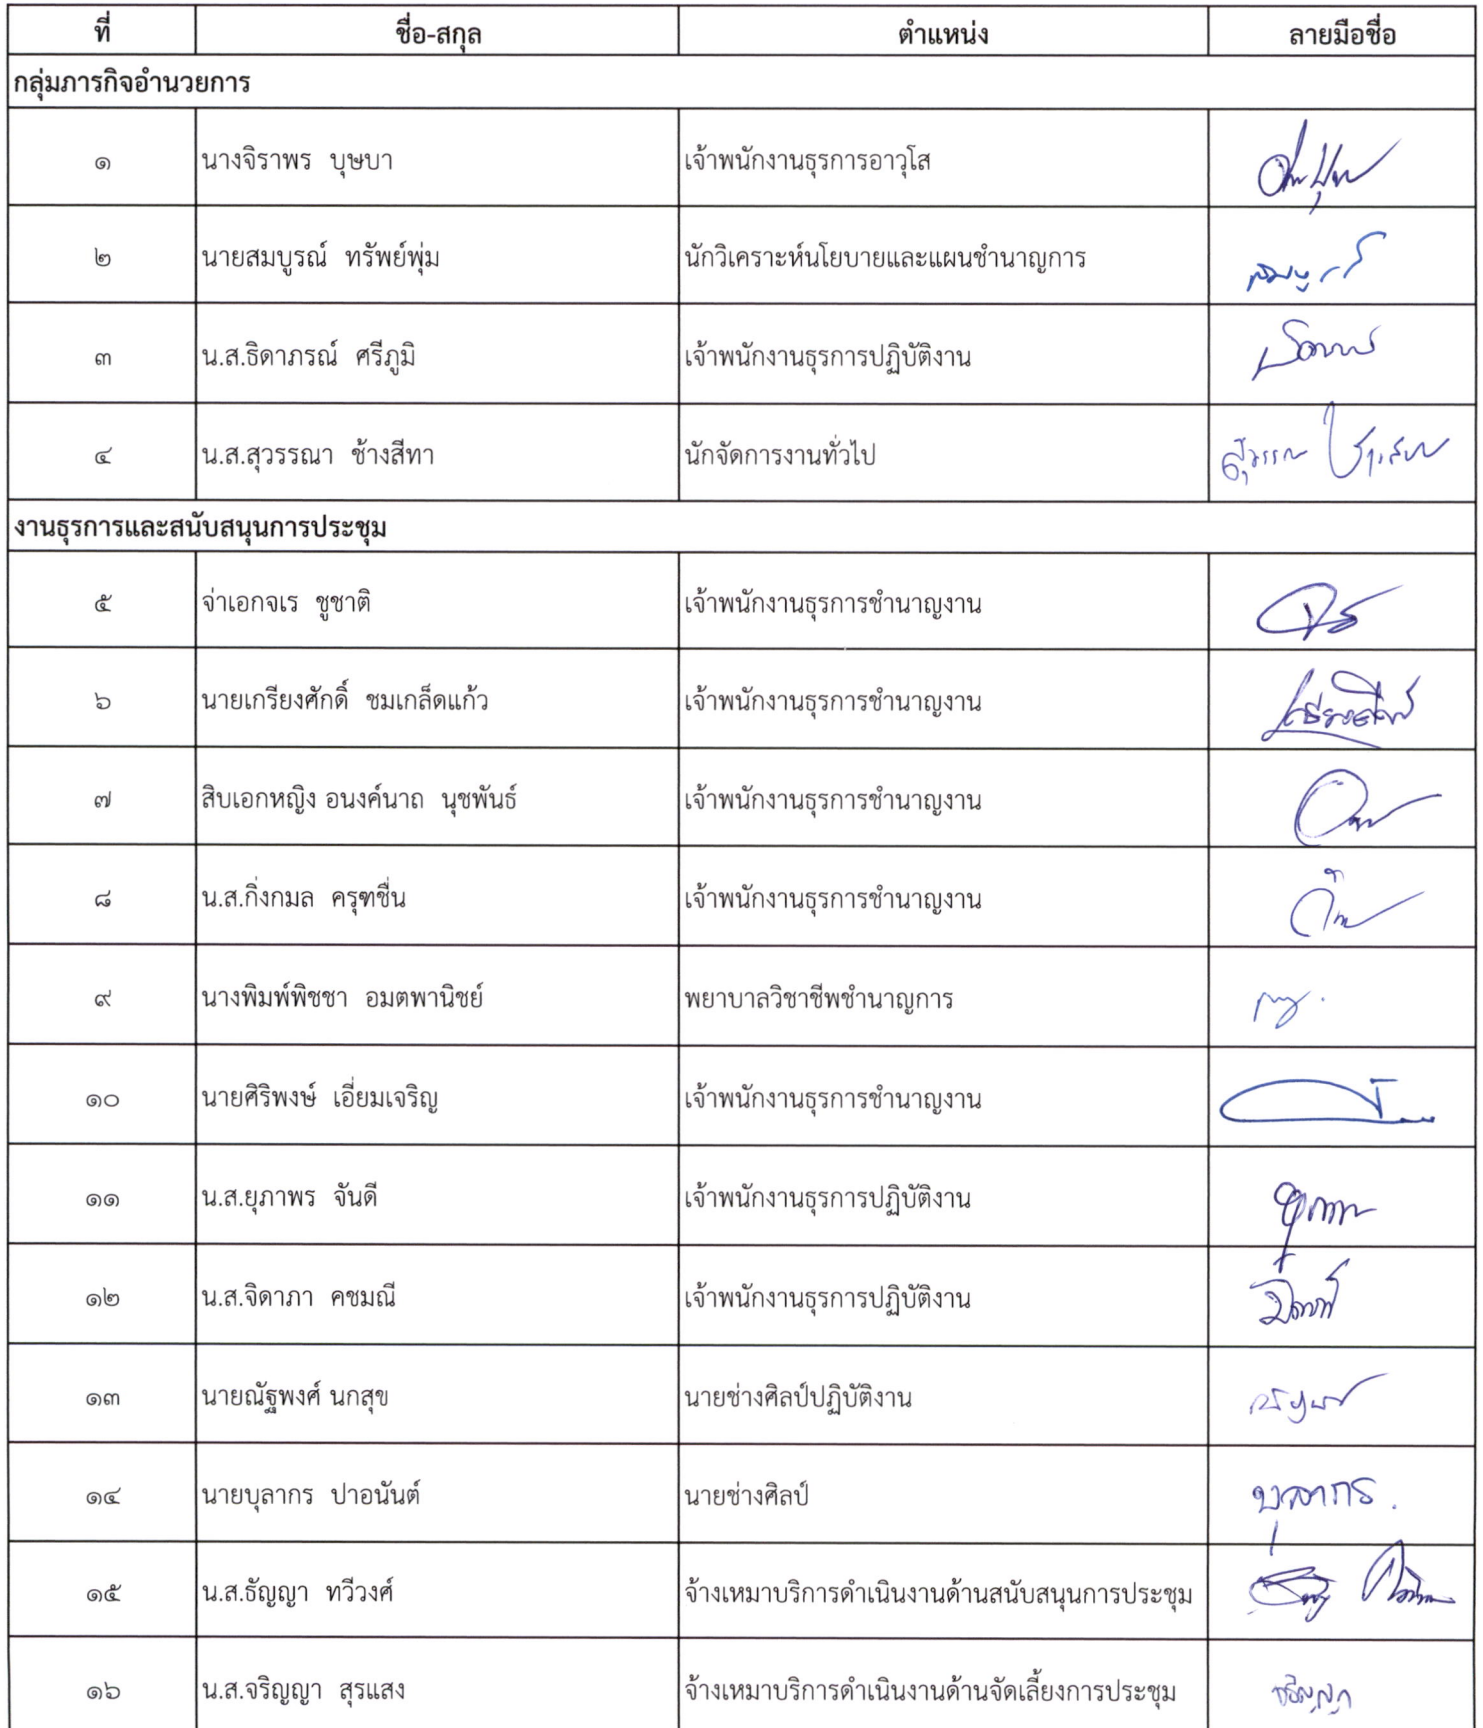 ที่ ชื่อ-สกุล ตำแหน่ง ลายมือชื่อ
กลุ่มภารกิจอำนวยการ
๑ นางจิราพร บุษบา เจ้าพนักงานธุรการอาวุโส
๒ นายสมบูรณ์ ทรัพย์พุ่ม นักวิเคราะห์นโยบายและแผนชำนาญการ
๓ น.ส.ธิดาภรณ์ ศรีภูมิ เจ้าพนักงานธุรการปฏิบัติงาน
๔ น.ส.สุวรรณา ช้างสีทา นักจัดการงานทั่วไป
งานธุรการและสนับสนุนการประชุม
๕ จ่าเอกจเร ชูชาติ เจ้าพนักงานธุรการชำนาญงาน
๖ นายเกรียงศักดิ์ ชมเกล็ดแก้ว เจ้าพนักงานธุรการชำนาญงาน
๗ สิบเอกหญิง อนงค์นาถ นุชพันธ์ เจ้าพนักงานธุรการชำนาญงาน
๘ น.ส.กิ่งกมล ครุฑชื่น เจ้าพนักงานธุรการชำนาญงาน
๙ นางพิมพ์พิชชา อมตพานิชย์ พยาบาลวิชาชีพชำนาญการ
๑๐ นายศิริพงษ์ เอี่ยมเจริญ เจ้าพนักงานธุรการชำนาญงาน
๑๑ น.ส.ยุภาพร จันดี เจ้าพนักงานธุรการปฏิบัติงาน
๑๒ น.ส.จิดาภา คชมณี เจ้าพนักงานธุรการปฏิบัติงาน
๑๓ นายณัฐพงศ์ นกสุข นายช่างศิลป์ปฏิบัติงาน
๑๔ นายบุลากร ปาอนันต์ นายช่างศิลป์ บุลากร.
๑๕ น.ส.ธัญญา ทวีวงศ์ จ้างเหมาบริการดำเนินงานด้านสนับสนุนการประชุม
๑๖ น.ส.จริญญา สุรแสง จ้างเหมาบริการดำเนินงานด้านจัดเลี้ยงการประชุม จริญญา